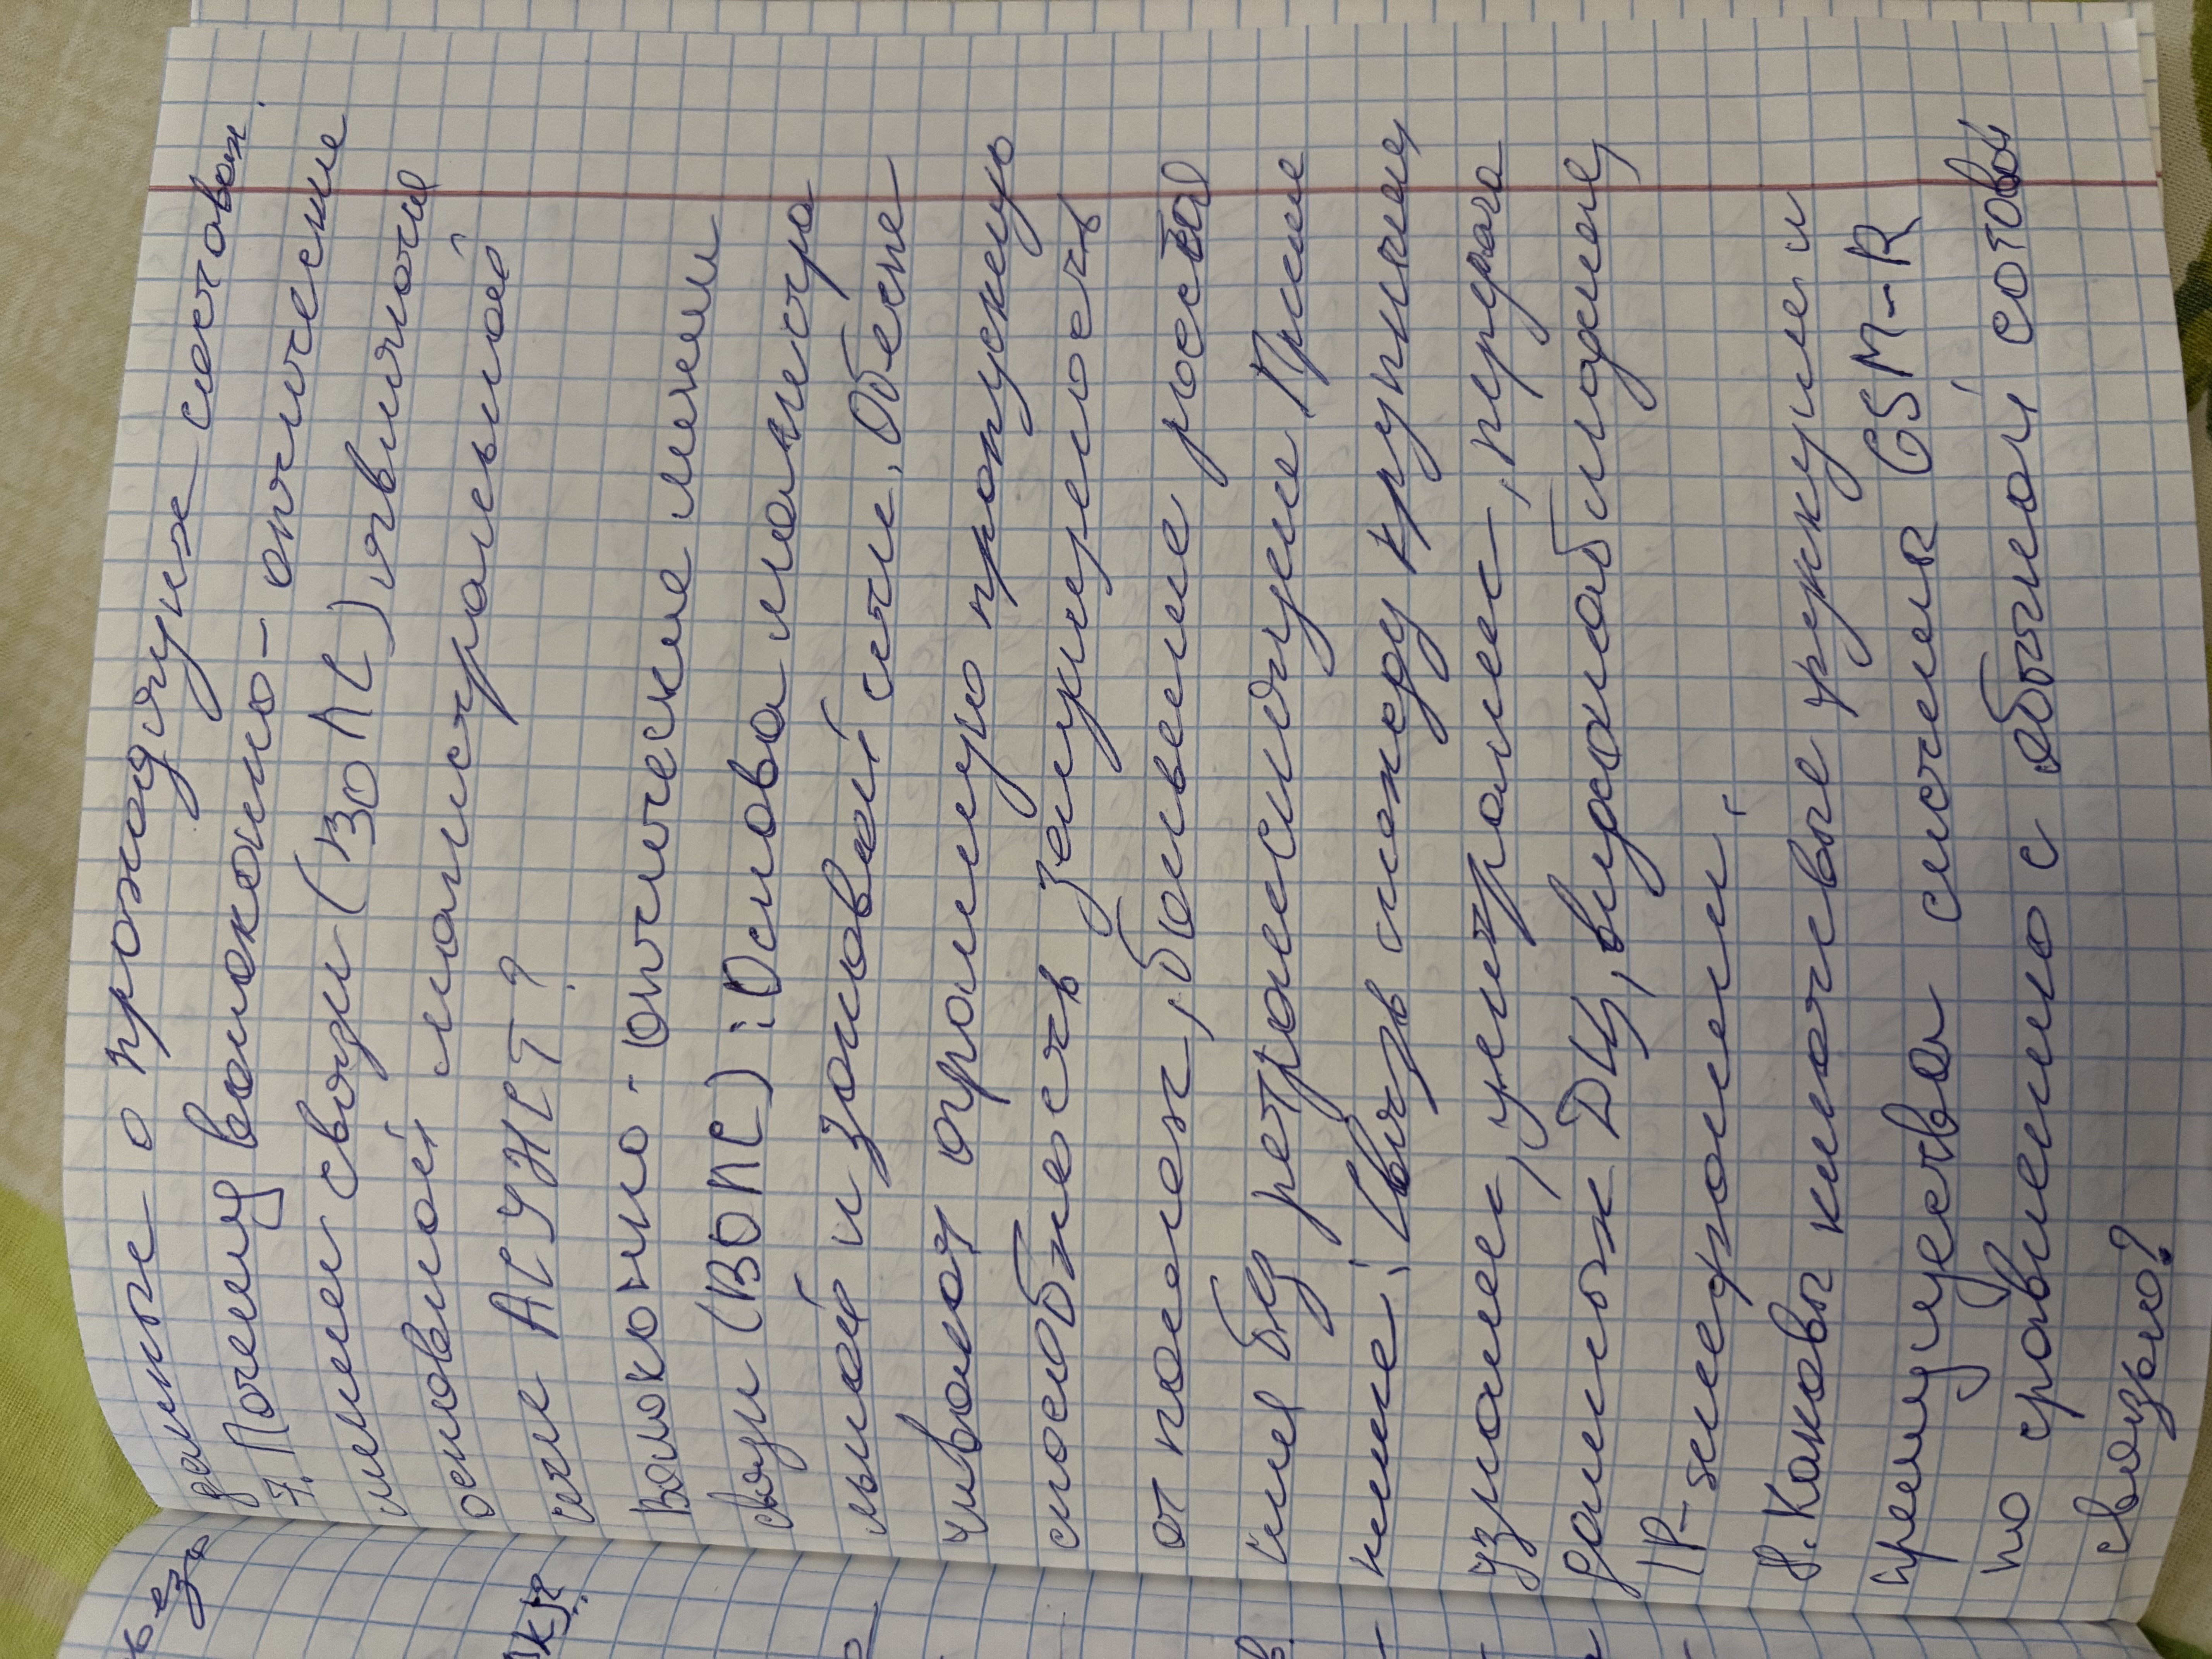 данные о проходящих составах.
7. Почему волоконно-оптические
линии связи (ВОЛС) являются
основной магистральной
сети АСУЖТ?
Волоконно-оптические линии
связи (ВОЛС): Основа магистра
льной и зоновой сети. Обеспе
чивают огромную пропускную
способность защищенность
от помех, большие расстоя
ния без ретрансляции Приме
нение: Связь между крупными
узлами, централис-, передача
данных ДЦ, видеонаблюдение,
IP-телефонии.
8. Каковы ключевые функции и
преимущества системы GSM-R
по сравнению с обычной сотовой
связью?